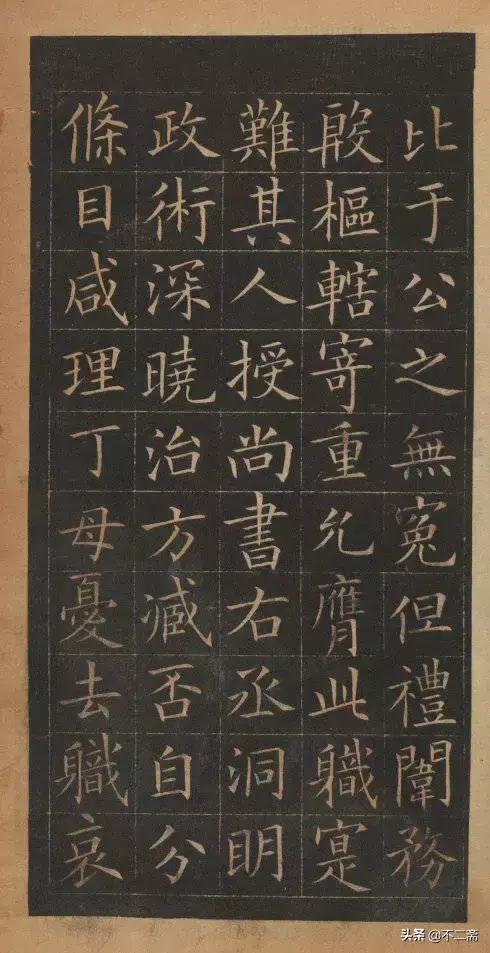 比于公之無寃但禮闈務
殷樞轄寄重允膺此職寔
難其人授尚書右丞洞明
政術深曉治方臧否自分
條目咸理丁母憂去職哀
头条 @不二斋